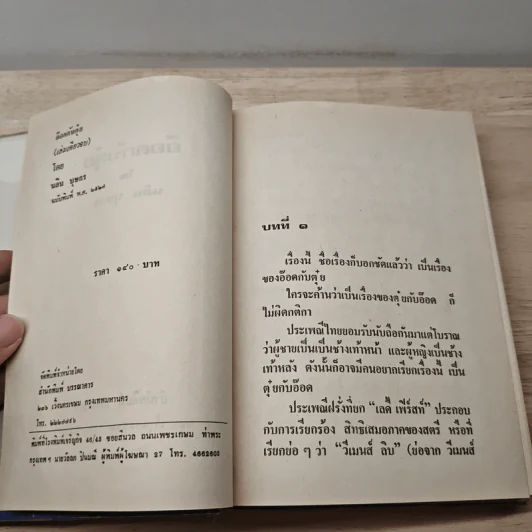 อ๊อดกับตุ๋ย
(เล่มเดียวจบ)
โดย
นลิน บุษกร
ฉบับพิมพ์ พ.ศ. ๒๕๒๗
ราคา ๑๔๐ บาท
จัดพิมพ์จำหน่ายโดย
สำนักพิมพ์ บรรณาคาร
๒๔๖ เวิ้งนครเขษม กรุงเทพมหานคร
โทร.
พิมพ์ที่โรงพิมพ์เจริญกิจ 46/43 ซอยสีนวล ถนนเพชรเกษม ท่าพระ
กรุงเทพ ฯ นายวัลลภ ปิ่นมณี ผู้พิมพ์ผู้โฆษณา 27 โทร. 4662600
บทที่ ๑
เรื่องนี้ ชื่อเรื่องก็บอกชัดแล้วว่า เป็นเรื่อง
ของอ๊อดกับตุ๋ย
ใครจะค้านว่าเป็นเรื่องของตุ๋ยกับอ๊อด ก็
ไม่ผิดกติกา
ประเพณีไทยยอมรับนับถือกันมาแต่โบราณ
ว่าผู้ชายเป็นเป็นช้างเท้าหน้า และผู้หญิงเป็นช้าง
เท้าหลัง ดังนั้นก็อาจมีคนอยากเรียกเรื่องนี้ เป็น
ตุ๋ยกับอ๊อด
ประเพณีฝรั่งที่ยก “เลดี้ เฟิร์สท์” ประกอบ
กับการเรียกร้อง สิทธิเสมอภาคของสตรี หรือที่
เรียกย่อ ๆ ว่า “วีเมนส์ ลิบ” (ย่อจาก วีเมนส์